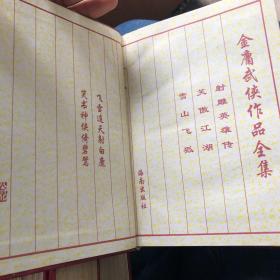 金庸武侠作品全集
射雕英雄传
笑傲江湖
雪山飞狐
海南出版社
飞雪连天射白鹿
笑书神侠倚碧鸳